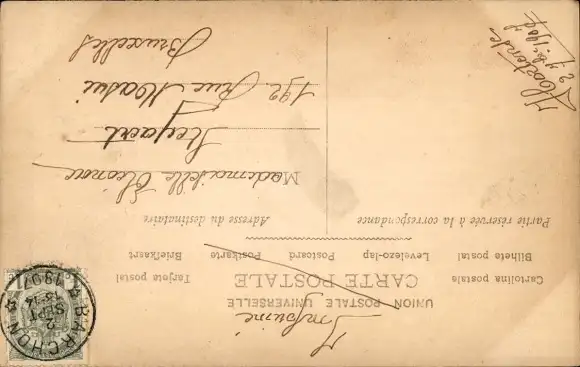 Imprimé
UNION POSTALE UNIVERSELLE
CARTE POSTALE
Cartolina postal
Tarjeta postal
Bilhete postal
Levelezo-lap
Postcard
Postkarte
Briefkaert
Partie réservée à la correspondance
Adresse du destinataire
Mademoiselle Eléonore
Steyaert
192 Rue Masui
Bruxelles
BARCHON
2
SEPT
13-14
1907